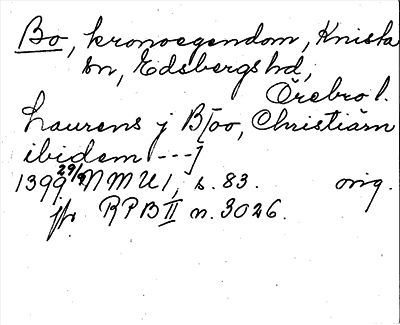 Bo, kronoegendom, Knista
sn, Edsbergs hd,
Örebro l.
Laurens j B[oo, Christiærn
ibidem ---]
1399 29/9 NMU 1, s. 83. orig.
jfr RPB II n. 3026.